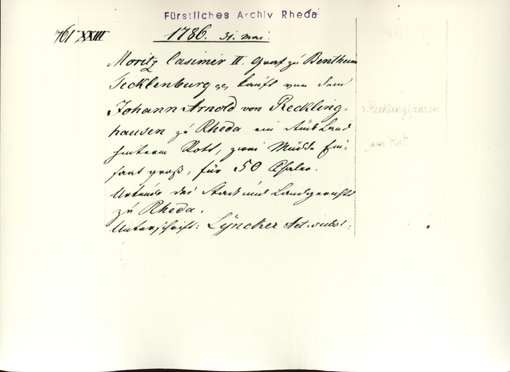 Fürstliches Archiv Rheda
761 XXIII
1786. 31. Mai
Moritz Casimir II. Graf zu Bentheim
Tecklenburg pp kauft von dem
Johann Arnold von Reckling-
hausen zu Rheda ein Stück Land
hinterm Rott, zwei Müdde Ein-
saat groß, für 50 Thaler.
Urkunde des Stadt und Landgerichts
zu Rheda.
Unterschrift: Lyncker
v. Recklinghausen
"am Rott"